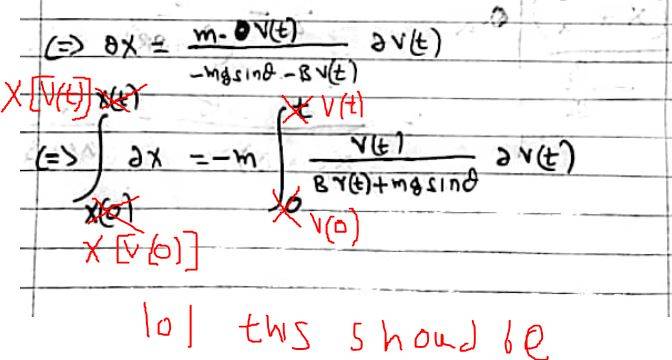 (=> ∂x = m · v(t) / -mg sinθ - B v(t) ∂v(t)
x[v(t)] x(t) t v(t)
(=> ∫ ∂x = -m ∫ v(t) / B v(t) + mg sinθ ∂v(t)
x(0) 0 v(0)
x[v(0)]
lol this shoud be